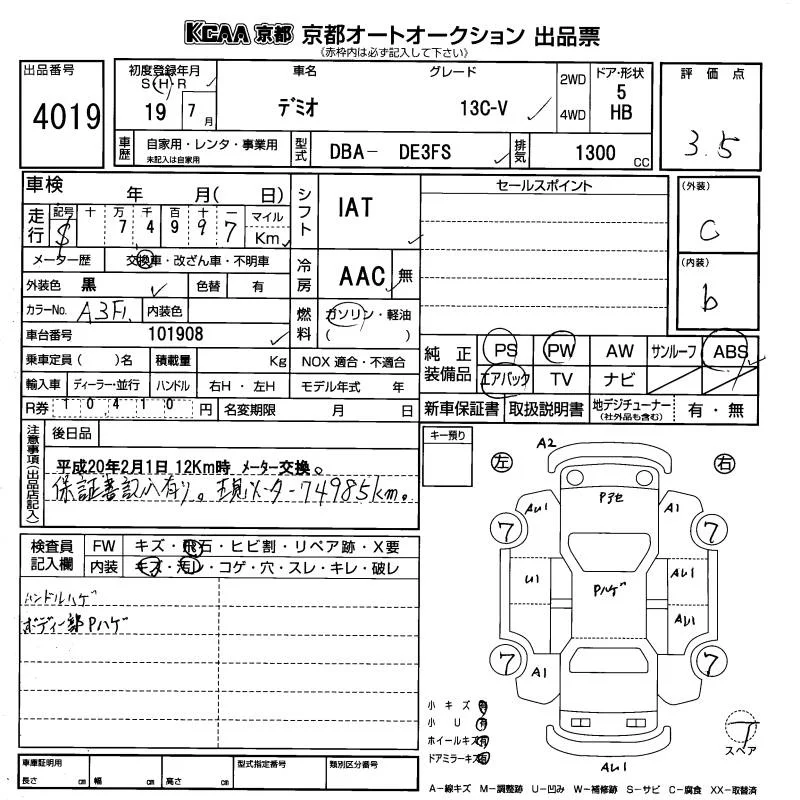 KCAA 京都 京都オートオークション 出品票
(赤枠内は必ず記入して下さい)
出品番号
4019
初度登録年月
S・H・R
19 7月
車名
デミオ
グレード
13C-V
2WD
4WD
ドア・形状
5
HB
評価点
3.5
車歴
自家用・レンタ・事業用
未記入は自家用
型式
DBA- DE3FS
排気
1300 cc
車検
年 月( 日)
シフト
IAT
セールスポイント
(外装)
C
走行
記号 十 万 千 百 十 一
$ 7 4 9 9 7
マイル
Km
メーター歴
交換車・改ざん車・不明車
冷房
AAC 無
(内装)
b
外装色 黒
色替 有
カラーNo. A3F1.
内装色
燃料
ガソリン・軽油
( )
車台番号
101908
純正装備品
PS PW AW サンルーフ ABS
エアバック TV ナビ
乗車定員( )名
積載量 Kg
NOX 適合・不適合
輸入車
ディーラー・並行
ハンドル
右H・左H
モデル年式 年
R券 10410 円
名変期限 月 日
新車保証書 取扱説明書 地デジチューナー
(社外品も含む)
有・無
注意事項(出品店記入)
後日品
平成20年2月1日 12Km時 メーター交換。
保証書記入有り。現メーター74985km。
キー預り
左
右
A2
Pヨセ
AU1
A1
7
7
U1
Pハゲ
AU1
AU1
7
7
A1
AU1
検査員記入欄
FW
キズ・飛石・ヒビ割・リペア跡・X要
内装
キズ・汚レ・コゲ・穴・スレ・キレ・破レ
ハンドルハゲ
ボディー部Pハゲ
小キズ 有
小U 有
ホイールキズ 有
ドアミラーキズ 有
T
スペア
車庫証明用
長さ cm 幅 cm 高さ cm
型式指定番号
類別区分番号
A-線キズ M-調整跡 U-凹み W-補修跡 S-サビ C-腐食 XX-取替済